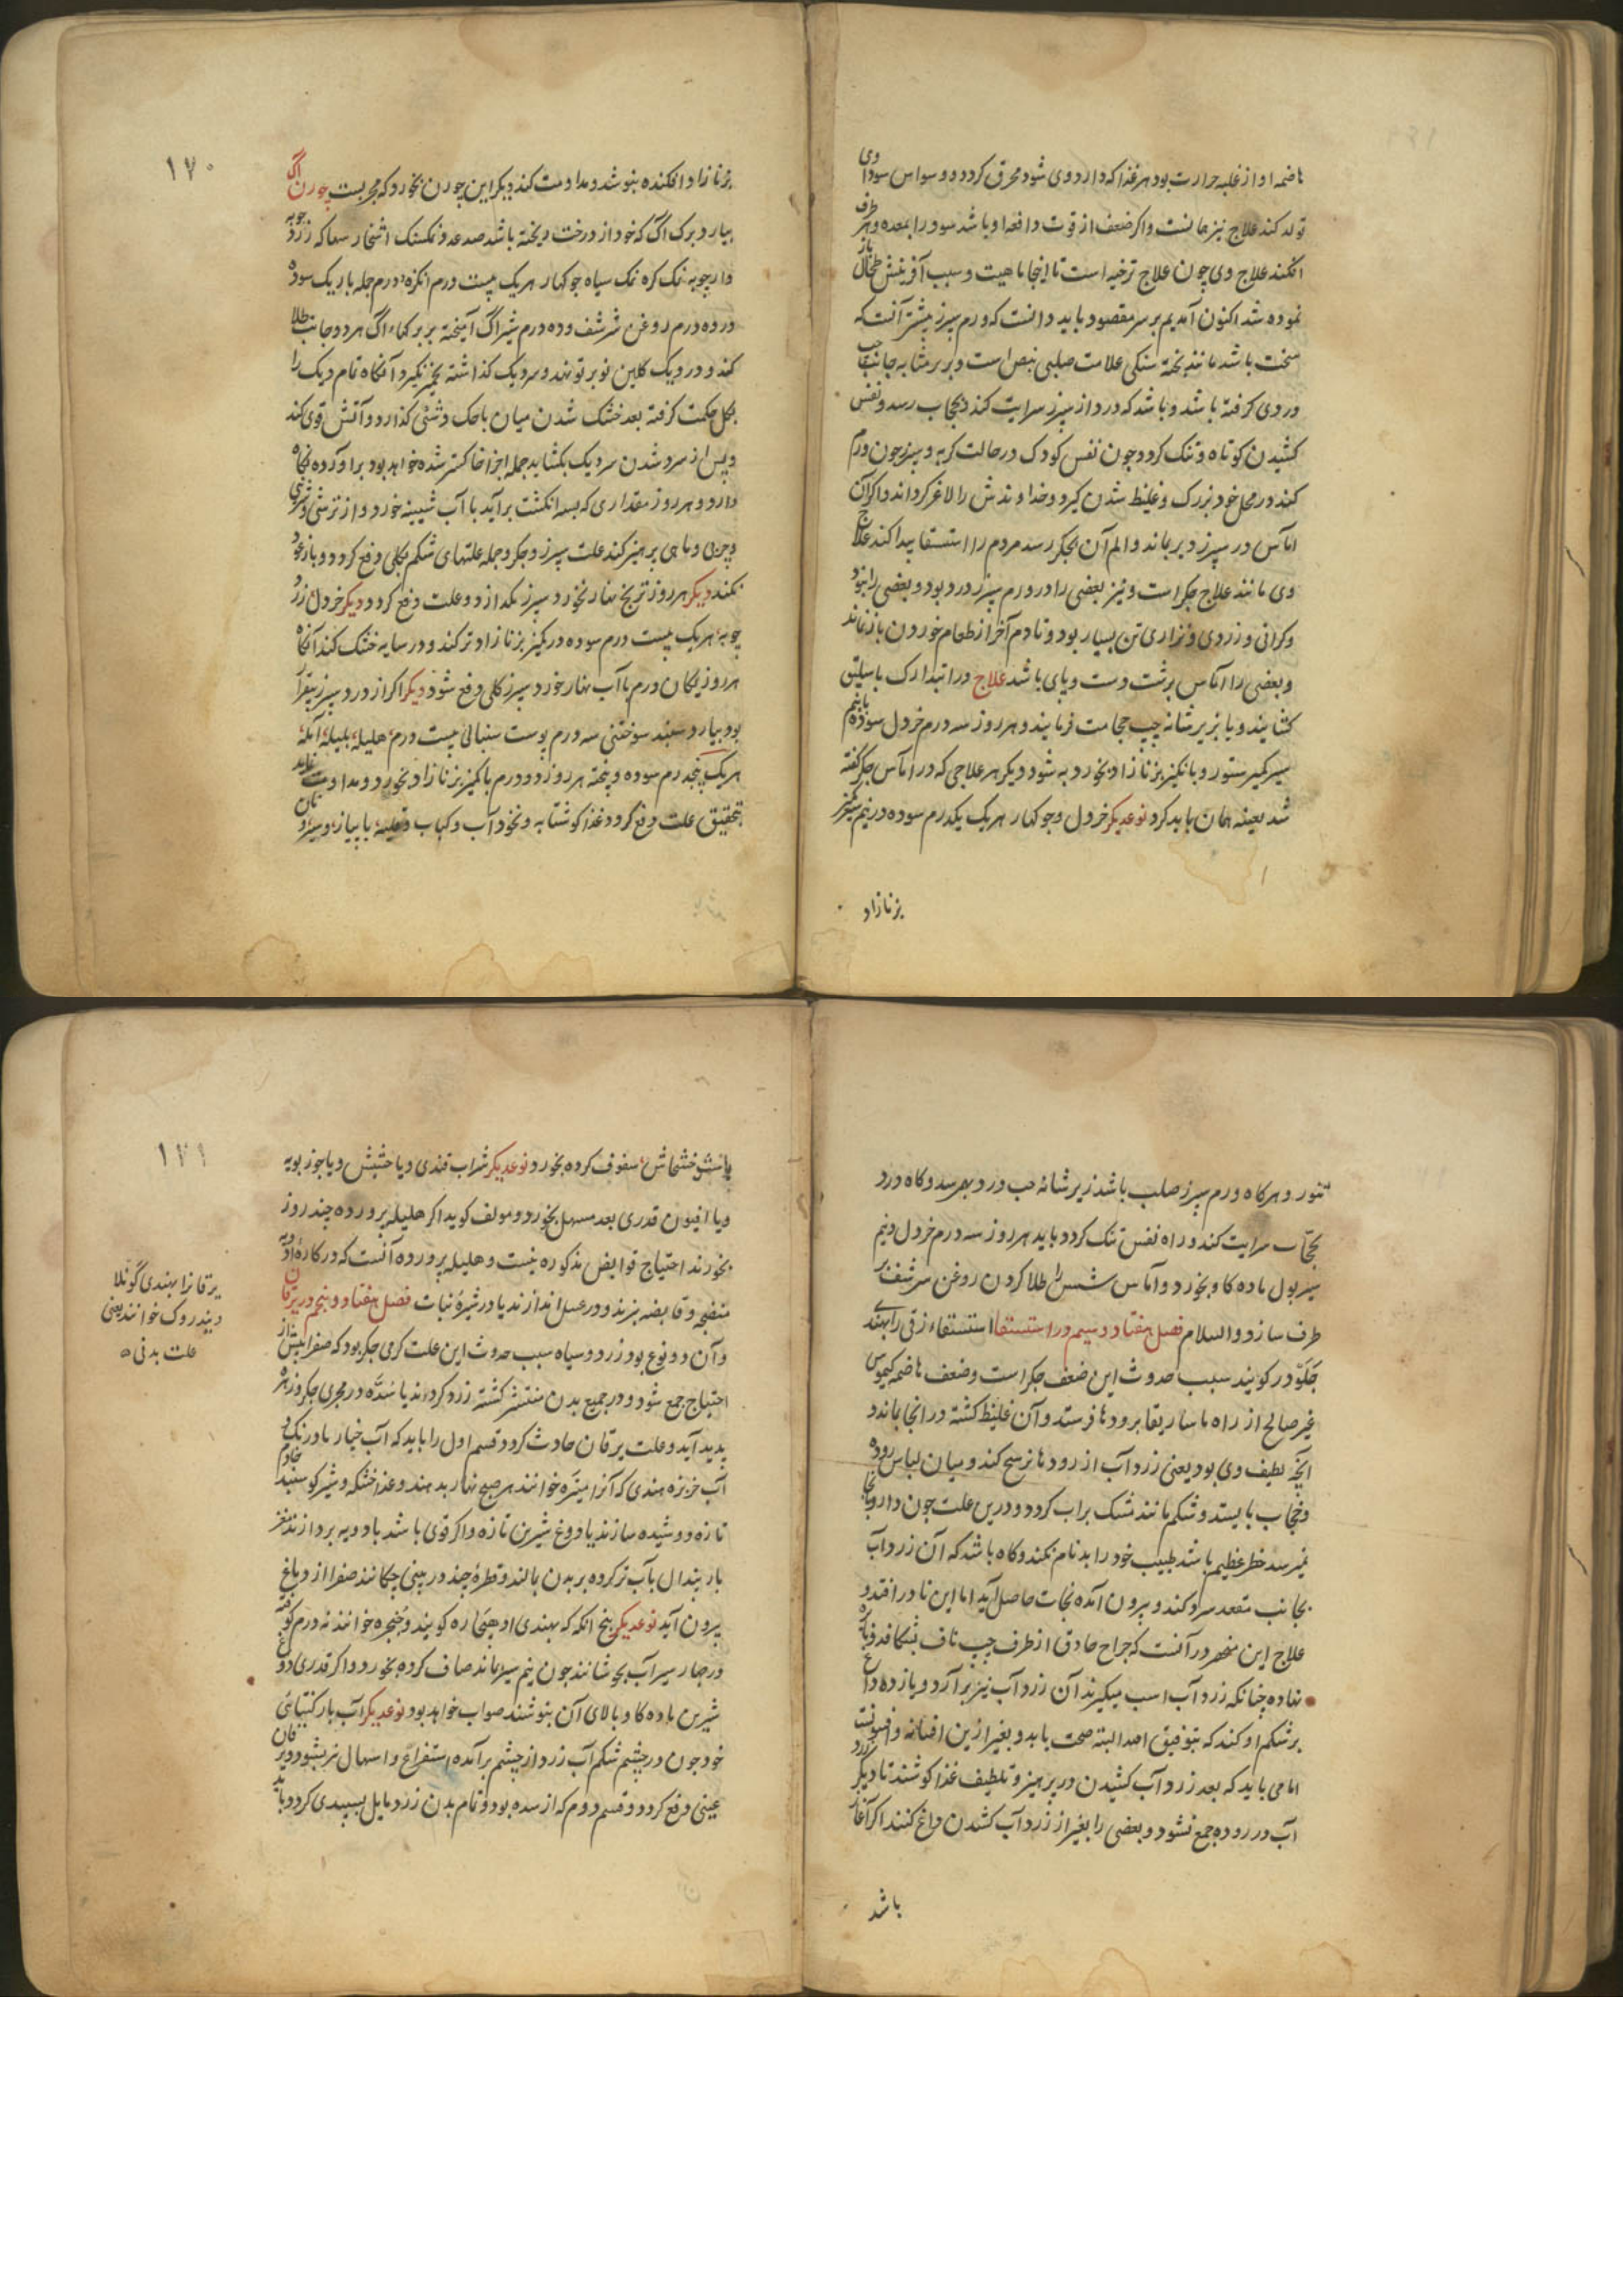 هاضمه او از غلبه حرارت بود هر غذا که دار دوی شود محرق کردد و وسواس سوداوی
تولد کند علاج نیز همانست واکر ضعف از قوت دافعه او باشد سودرا بمعده وهر طرف
افکند علاج وی چون علاج ترخیه است تا اینجا ماهیت و سبب آفرینش طحال باز
نموده شد اکنون آمدیم بر سر مقصود باید دانست که ورم سپرز بیشتر آنست که
سخت باشد مانند تخته سنکی علامت صلبی نبض است و بربر مثابه جانب چپ
دردی کرفته باشد و باشد که درد از سپرز سرایت کند و بحجاب رسد و نفس
کشیدن کوتاه و تنک کردد چون نفس کودک در حالت کریه و سپرز چون ورم
کند در محل خود بزرک و غلیظ شدن کیرد و خداوندش را لاغر کرداند واکر آن
اماس در سپرز دیر بماند و الم آن بجکر رسد مردم را استسقا پیدا کند علاج
وی مانند علاج جکر است و نیز بعضی را در ورم سپرز درد بود و بعضی را نبود
وکرانی و زردی و نزاری تن بسیار بود و تا دم آخر از طعام خوردن باز نماند
و بعضی را اماس بر پشت دست و پای باشد علاج در ابتدا رک باسلیق
کشایند و یا بزیر شانه چپ حجامت فرمایند و هر روز سه درم خردل سوده با نیم
سیر کمیز ستور و با کمیز بز نازاد بخورد به شود دیکر هر علاجی که در اماس جکر کفته
شد بعینه همان باید کرد نوعدیکر خردل و جوکهار هر یک یکدرم سوده در نیم سیر کمیز
بز نازاد
۱۷۰
بز نازاد افکنده بنوشد و مداومت کند دیکر این چورن بخورد که مجربست چورن اک
بیارد برک اک که خود از درخت ریخته باشد صد عدد نمکسنک اشخار سهاکه زرد چوبه
دار چوبه نمک کره نمک سیاه جوکهار هر یک بیست درم انکزه ده درم جمله باریک سوده
در ده درم روغن شرشف و ده درم شیر اک آمیخته بر برکهاء اک هر دو جانب طلا
کند و در دیک کلین نو بر تو نهد و سر دیک کذاشته بخمیر کیرد آنکاه تمام دیک را
بکل حکمت کرفته بعد خشک شدن میان پاچک دشتی کذارد و آتش قوی کند
و پس از سرد شدن سر دیک بکشاید جمله اجزا خاکستر شده خواهد بود برآورده نکاه
دارد و هر روز مقداری که بسه انکشت برآید با آب شبینه خورد و از ترشی و شیرینی
و چربی و ماهی پرهیز کند علت سپرز و جکر و جمله علتهای شکم بکلی دفع کردد و باز عود
نکند دیکر هر روز ترنج نهار بخورد سپرز بکدازد و علت دفع کردد دیکر خردل زرد
چوبه هر یک بیست درم سوده در کمیز بز نازاد تر کند و در سایه خشک کند آنکاه
هر روز یکان درم با آب نهار خورد سپرز کلی دفع شود دیکر اکر از درد سپرز بیقرار
بود بیارد سپند سوختنی سه درم پوست سنبالی بیست درم هلیله بلیله آمله
هر یک پنجدرم سوده و پخته هر روز دو درم با کمیز بز نازاد بخورد و مداومت نماید
بتحقیق علت دفع کردد غذا کوشتابه و نخود آب و کباب و قلیه با پیاز و سیر و نان
تنور و هرکاه ورم سپرز صلب باشد زیر شانه چپ درد بهم رسد و کاه درد
بحجاب سرایت کند و راه نفس تنک کردد باید هر روز سه درم خردل و نیم
سیر بول ماده کاو بخورد و اماس شش را طلا کردن روغن سرشف بر
طرف سازد والسلام فصل هفتاد و سیم در استسقا استسقاء زقی را بهندی
جلودر کویند سبب حدوث این ضعف جکر است و ضعف هاضمه کیموس
غیر صالح از راه ماساریقا برودها فرستد و آن غلیظ کشته در انجا بماند و
انچه لطیف وی بود یعنی زرد آب از رودها ترشح کند و میان لباس روده
و حجاب بایستد و شکم مانند مشک پر آب کردد و درین علت چون دارو بانجا
نمیرسد خطر عظیم باشد طبیب خود را بدنام نکند و کاه باشد که آن زرد آب
بجانب مقعد سر و کند و بیرون آمده نجات حاصل آید اما این نادر افتد و
علاج این منحصر در آنست که جراح حاذق از طرف چپ ناف بشکافد و
نهاده چنانکه زرد آب اسب میکیرند آن زرد آب نیز برآرد و یازده داغ
بر شکم او کند که بتوفیق احد البته صحت یابد و بغیر ازین افسانه و افسونست
اما می باید که بعد زرد آب کشیدن در پرهیز و تلطیف غذا کوشند تا دیکر زرد
آب در روده جمع نشود و بعضی را بغیر از زرد آب کشدن داغ کنند اکر آغاز
باشد
۱۷۱
با شیره خشخاش سفوف کرده بخورد نوعدیکر شراب قندی و یا حشیش و یا جوز بویه
و یا افیون قدری بعد مسهل بخورد و مولف کوید اکر هلیله پرورده چند روز
بخورند احتیاج قوابض مذکوره نیست و هلیله پرورده آنست که در کاره ادویه
منضجه و قابضه بپزند و در عسل اندازند یا در شیره نبات فصل هفتاد و پنجم در یرقان
و آن دو نوع بود زرد و سیاه سبب حدوث این علت کرمی جکر بود که صفرا بیش از
احتیاج جمع شود و در جمیع بدن منتشر کشته زرد کرداند یا سده در مجری جکر و زهره
پدید آید و علت یرقان حادث کردد قسم اول را باید که آب خیار بادرنک و
آب خربزه هندی که آنرا متیره خوانند هر صبح نهار بدهند و غذا خشکه و شیر کوسپند
تازه دوشیده سازند یا دوغ شیرین تازه و اکر قوی باشد بادویه پردازند
باربندال بآب تر کرده بر بدن بمالند و قطرۀ چند در بینی چکانند صفرا از دماغ
بیرون آید نوعدیکر بیخ انکه که بهندی اوهنجاره کویند و خوانند نه درم کوفته
در چهار سیر آب بجوشانند چون نیم سیر ماند صاف کرده بخورد و اکر قدری دوغ
شیرین ماده کاو بالای آن بنوشند صواب خواهد بود نوعدیکر آب بار کتیائی
خورد چون در چشم شکم آب زرد از چشم برآمده استفراغ و اسهال نیز بشود و یرقان
عینی دفع کردد و قسم دوم که از سده بود و تمام بدن زرد مایل بسپیدی کردد باید
یرقانرا بهندی کونلا
و پندروک خوانند یعنی
علت بدنی